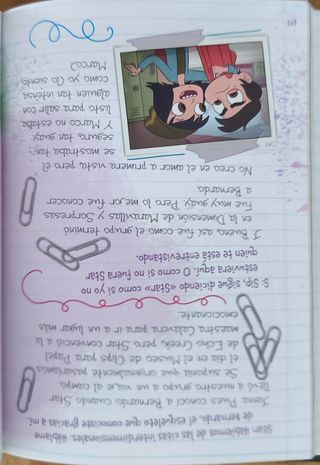 Star: Hablemos de las citas interdimensionales. Háblame
de Bernardo, el esqueleto que conociste gracias a mí.
Janna: Pues conocí a Bernardo cuando Star
llevó a nuestro grupo a un viaje al campo.
Se suponía que originalmente pasaríamos
el día en el Museo de Clips para Papel
de Echo Creek, pero Star convenció a la
maestra Calavera para ir a un lugar más
emocionante.
S: Sip, sigue diciendo «Star» como si yo no
estuviera aquí. O como si no fuera Star
quien te está entrevistando.
J: Bueno, fue así como el grupo terminó
en la Dimensión de Maravillas y Sorpresas.
Fue muy guay. Pero lo mejor fue conocer
a Bernardo.
No creo en el amor a primera vista, pero él
se mostraba tan,
seguro, tan guay.
Y Marco no estaba
listo para salir con
alguien tan intensa
como yo (lo siento
Marco).